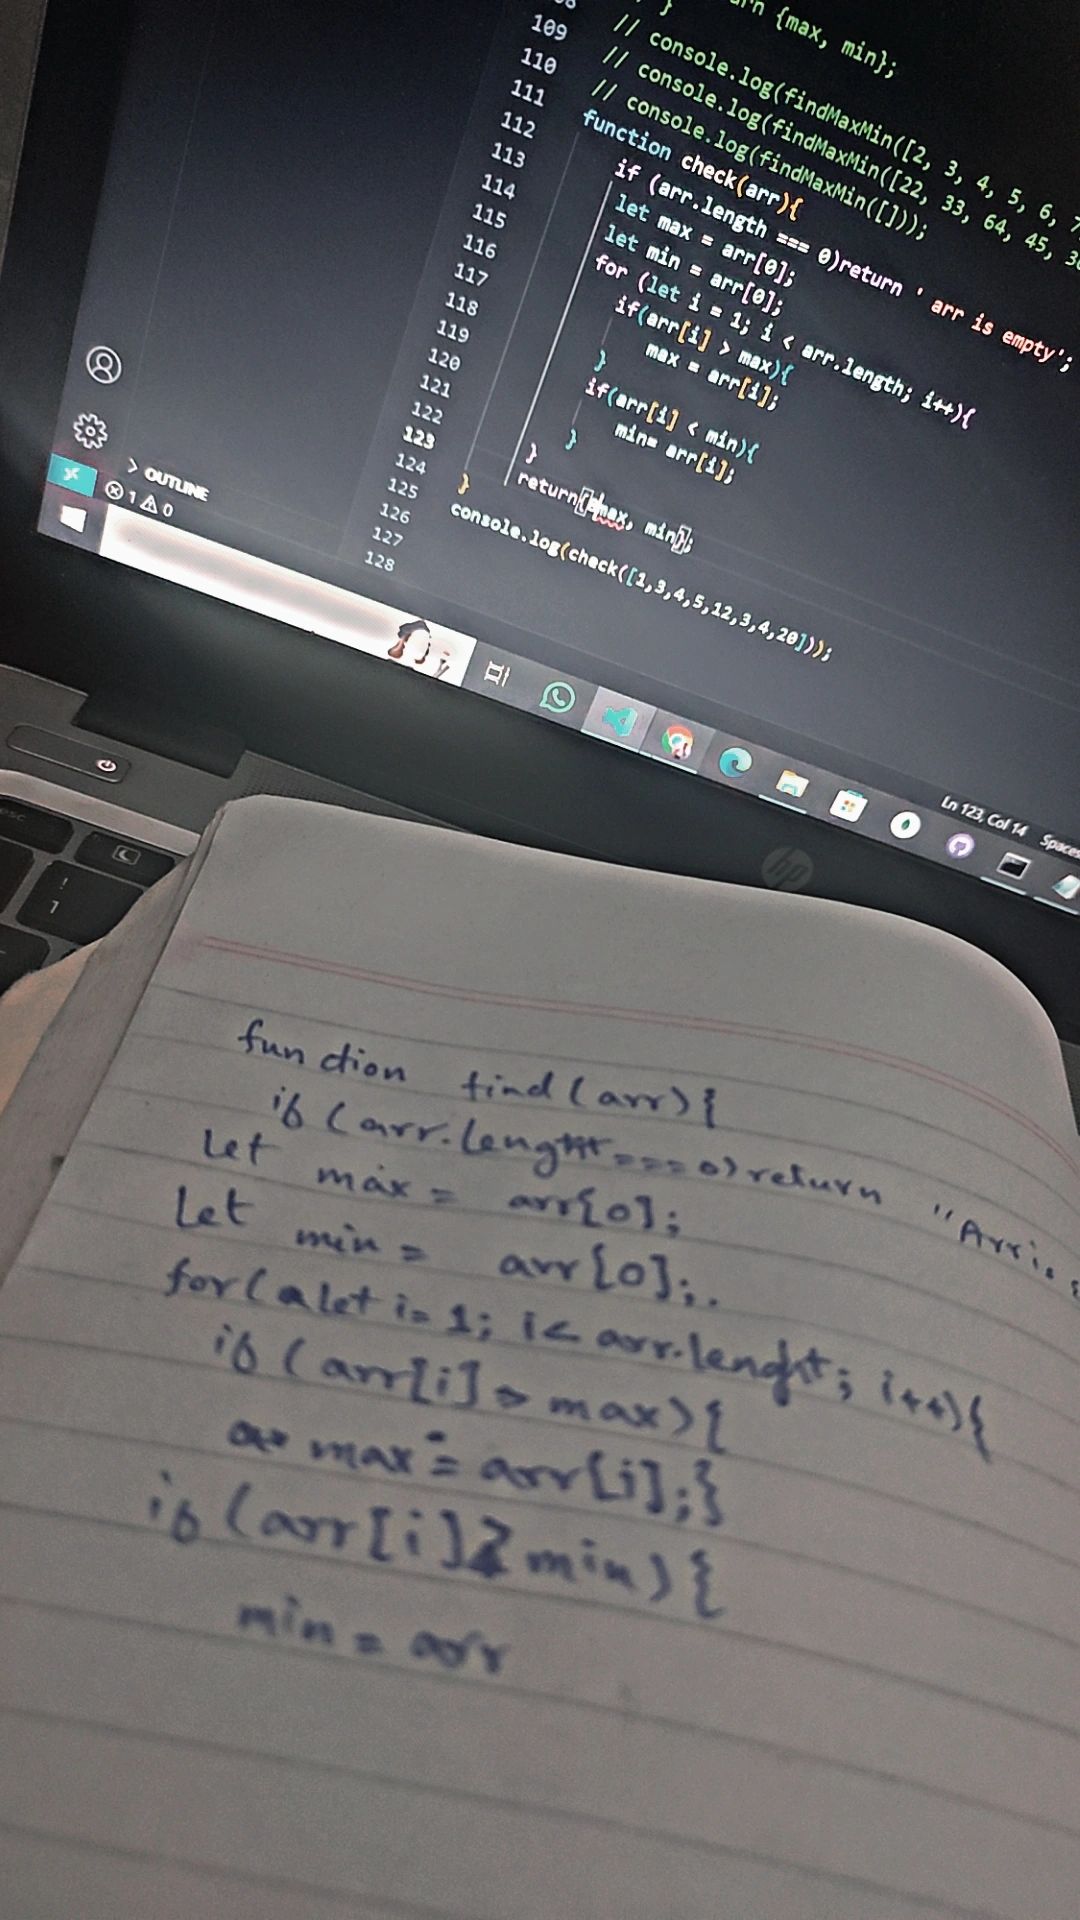 108
109
110
111
112
113
114
115
116
117
118
119
120
121
122
123
124
125
126
127
128
{max, min};
}
// console.log(findMaxMin([2, 3, 4, 5, 6, 7
// console.log(findMaxMin([22, 33, 64, 45, 3
// console.log(findMaxMin([]));
function check(arr){
if (arr.length === 0)return ' arr is empty';
let max = arr[0];
let min = arr[0];
for (let i = 1; i < arr.length; i++){
if(arr[i] > max){
max = arr[i];
}
if(arr[i] < min){
min= arr[i];
}
}
return{ max, min};
}
console.log(check([1,3,4,5,12,3,4,20]));
> OUTLINE
1 0
Ln 123, Col 14 Spaces
esc
!
1
hp
function find(arr){
if (arr.length===0) return "Arr is
Let max = arr[0];
Let min = arr[0];.
for(let i=1; i< arr.lenght; i++){
if (arr[i] > max){
max = arr[i];}
if (arr[i] min){
min = arr